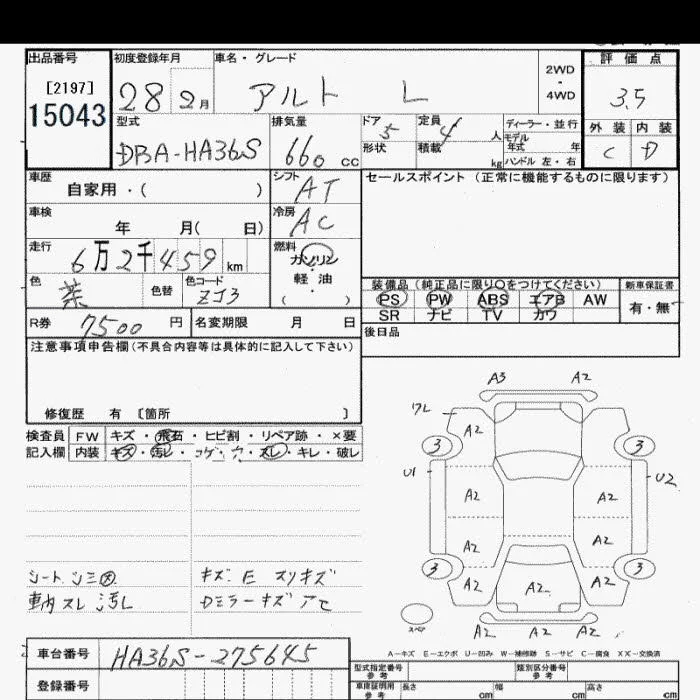 出品番号
[2197]
15043
初度登録年月
28 2月
車名・グレード
アルト L
2WD
・
4WD
評価点
3.5
外装 内装
C D
型式
DBA-HA36S
排気量
660 cc
ドア
5
形状
定員
4人
積載
kg
ディーラー・並行
モデル
年式 年
ハンドル 左・右
車歴
自家用・( )
シフト
AT
セールスポイント (正常に機能するものに限ります)
車検
年 月( 日)
冷房
AC
走行
6万2千459 km
燃料
ガソリン
軽油
( ・ )
色
茶
色替
色コード
ZJ3
装備品 (純正品に限り〇をつけてください)
PS PW ABS エアB AW
SR ナビ TV カワ
新車保証書
有・無
R券 7500 円
名変期限 月 日
後日品
注意事項申告欄(不具合内容等は具体的に記入して下さい)
修復歴 有 〔箇所 〕
検査員
記入欄
FW キズ・飛石・ヒビ割・リペア跡・×要
内装 キズ・汚レ・コゲ・穴・スレ・キレ・破レ
シート シミ大
車内 スレ 汚レ
キズ. E スリキズ
Dミラーキズ アセ
A3 A2
ワレ
A2
3 3
U1 U2
A2 A2
A2 A2
3 3
A2 A2 A2
スペア
A2 A2 A2
A-キズ E-エクボ U-凹み W-補修跡 S-サビ C-腐食 XX-交換済
車台番号 HA36S-275645
登録番号
型式指定番号
参考
類別区分番号
参考
車庫証明用
参考
長さ cm
幅 cm
高さ cm